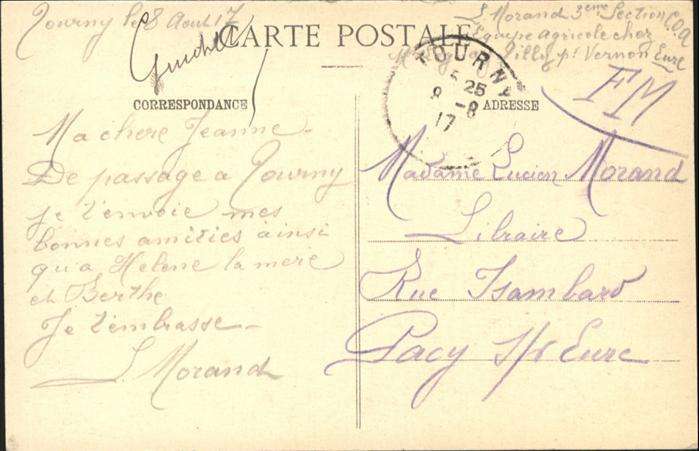 Tourny le 8 Aout 17
CARTE POSTALE
L Morand 3eme Section COA
Equipe agricole chez
Tilly pr Vernon Eure
TOURNY
5 25
8 -8
17
FM
CORRESPONDANCE
ADRESSE
Ma chere Jeanne -
De passage a Tourny
je t'envoie mes
bonnes amities ainsi
qu'a Helene la mere
et Berthe
Je t'embrasse -
L. Morand
Madame Lucien Morand
Libraire
Rue Isambard
Pacy s/ Eure